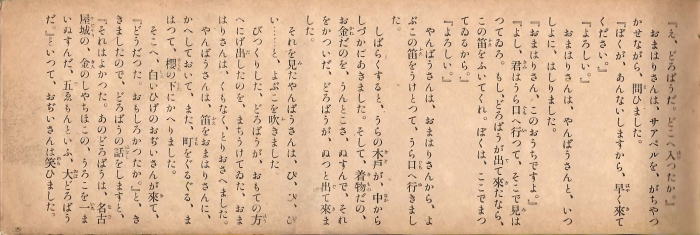 『え、どろぼうだ。どこへ入つたか。』
おまはりさんは、サアベルを、がちやつ
かせながら、問ひました。
『ぼくが、あんないしますから、早く來て
ください。』
『よろしい。』
おまはりさんは、やんばうさんと、いつ
しよに、はしりました。
『おまはりさん、このおうちですよ。』
『よし、君はうら口へ行つて、そこで見は
つてゐろ。もし、どろぼうが出て來たなら、
この笛をふいてくれ。ぼくは、ここでまつ
てゐるから。』
『よろしい。』
やんばうさんは、おまはりさんから、よ
ぶこの笛をうけとつて、うら口へ行きまし
た。
しばらくすると、うらの木戸が、中から
しづかにあきました。そして、着物だの、
お金だのを、うんとこさ、ぬすんで、それ
をかついだ、どろぼうが、ぬつと出て來ま
した。
それを見たやんばうさんは、ぴ、ぴ、ぴ
い……と、よぶこを吹きました
びつくりした、どろぼうが、おもての方
へにげ出したのを、まちうけてゐた、おま
はりさんは、くもなく、とりおさへました。
やんばうさんは、笛をおまはりさんに、
かへしておいて、また、町をぐるぐる、ま
はつて、櫻の下にかへりました。
そこへ、白いひげのおぢいさんが來て、
『どうだつた。おもしろかつたか。』と、き
きましたので、どろぼうの話をしますと、
『それはよかつた。あのどろぼうは、名古
屋城の、金のしやちほこの、うろこを一ま
いぬすんだ、五ゑもんといふ、大どろぼう
だ。』といつて、おぢいさんは笑ひました。